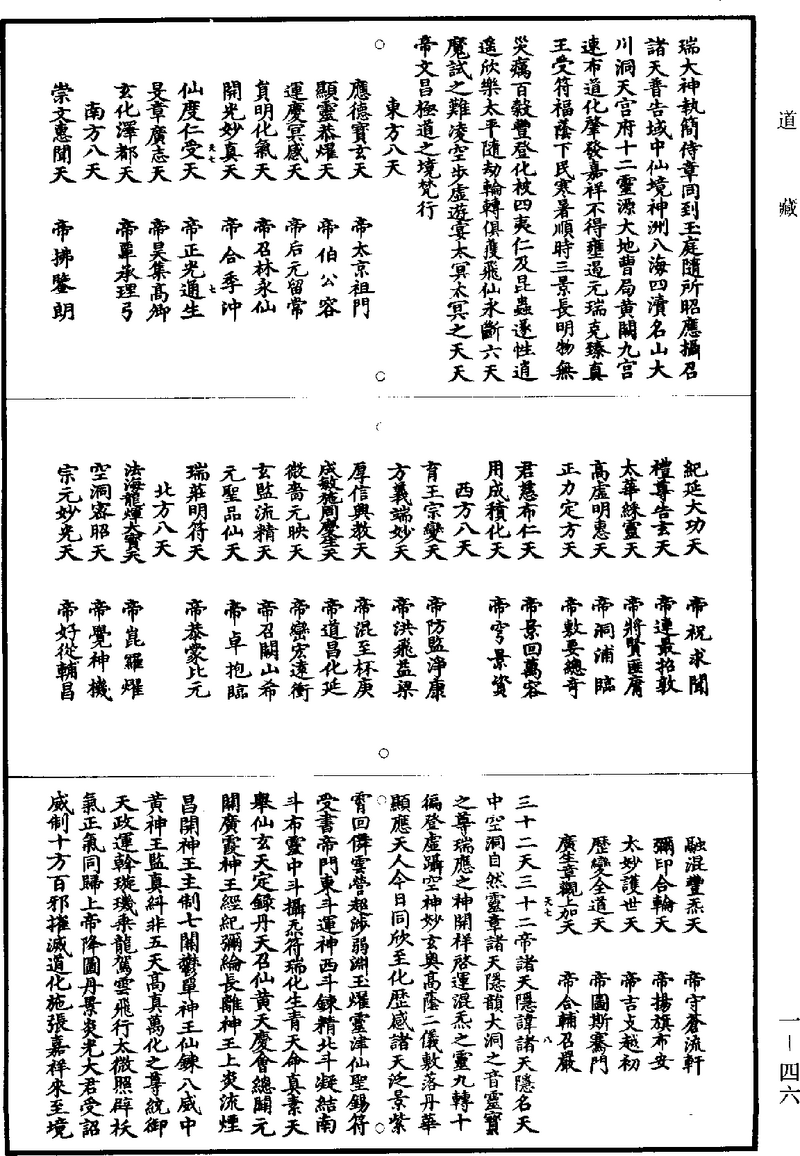 道藏
瑞大神執簡侍章同到玉庭隨所昭應攝召
諸天普告域中仙境神洲八海四瀆名山大
川洞天宮府十二靈源大地曹局黃闕九宮
速布道化肇發嘉祥不得壅遏元瑞克臻真
王受符福蔭下民寒暑順時三景長明物無
災癘百穀豐登化被四夷仁及昆蟲遂性逍
遥欣樂太平隨劫輪轉俱獲飛仙永斷六天
魔試之難凌空步虛遊宴太冥太冥之天天
帝文昌極道之境梵行
東方八天
應德寶玄天 帝太京祖門
顯靈恭燿天 帝伯公容
運慶冥感天 帝后元留常
貟明化氣天 帝召林永仙
開光妙真天 帝合季沖
仙度仁受天 帝正光通生
天七 七
旻章廣志天 帝昊集高御
玄化澤都天 帝單承理弓
南方八天
崇文惠聞天 帝拂鑒朗
紀延大功天 帝祝求聞
禮尊告玄天 帝連最招敦
太華綵靈天 帝將賢匪膺
高虛明惠天 帝洞浦臨
正力定方天 帝敷要總奇
君慈布仁天 帝景回萬容
用成積化天 帝穹景資
西方八天
育王宗變天 帝防監淨康
方義端妙天 帝洪飛益梁
厚信興教天 帝混至杯庚
成敏施周慶生天 帝道昌化延
微嗇元映天 帝巒宏遠衝
玄監流精天 帝召闕山希
元聖品仙天 帝卓抱臨
瑞莊明符天 帝恭蒙比元
北方八天
法海龍煇大寶天 帝崑羅燿
空洞密昭天 帝覺神機
宗元妙光天 帝好從輔昌
融混豐炁天 帝守蒼流軒
彌印合輪天 帝揚旗布安
太妙護世天 帝吉支越初
歷變全道天 帝圖斯騫門
廣生章觀上加天 帝合輔召嚴
天七 八
三十二天三十二帝諸天隱諱諸天隱名天
中空洞自然靈章諸天隱韻大洞之音靈寶
之尊瑞應之神開祥啓運混炁之靈九轉十
徧登虛躡空神妙玄奥高蔭二儀敷落丹華
顯應天人今日同欣至化歷感諸天泛景紫
霄回儛雲營超涉弱淵玉燿靈津仙聖錫符
受書帝門東斗運神西斗鍊精北斗凝結南
斗布靈中斗攝炁符瑞化生青天命真素天
舉仙玄天定録丹天召仙黃天慶會總開元
關廣霞神王經紀彌綸長離神王上炎流煙
昌開神王主制七關鬱單神王仙鍊八威中
黃神王監真糾非五天高真萬化之尊統御
天政運斡璇璣乘龍駕雲飛行太微照辟袄
氣正氣同歸上帝降圖丹景炎光大君受詔
威制十方百邪摧滅道化施張嘉祥來至境
一—四六